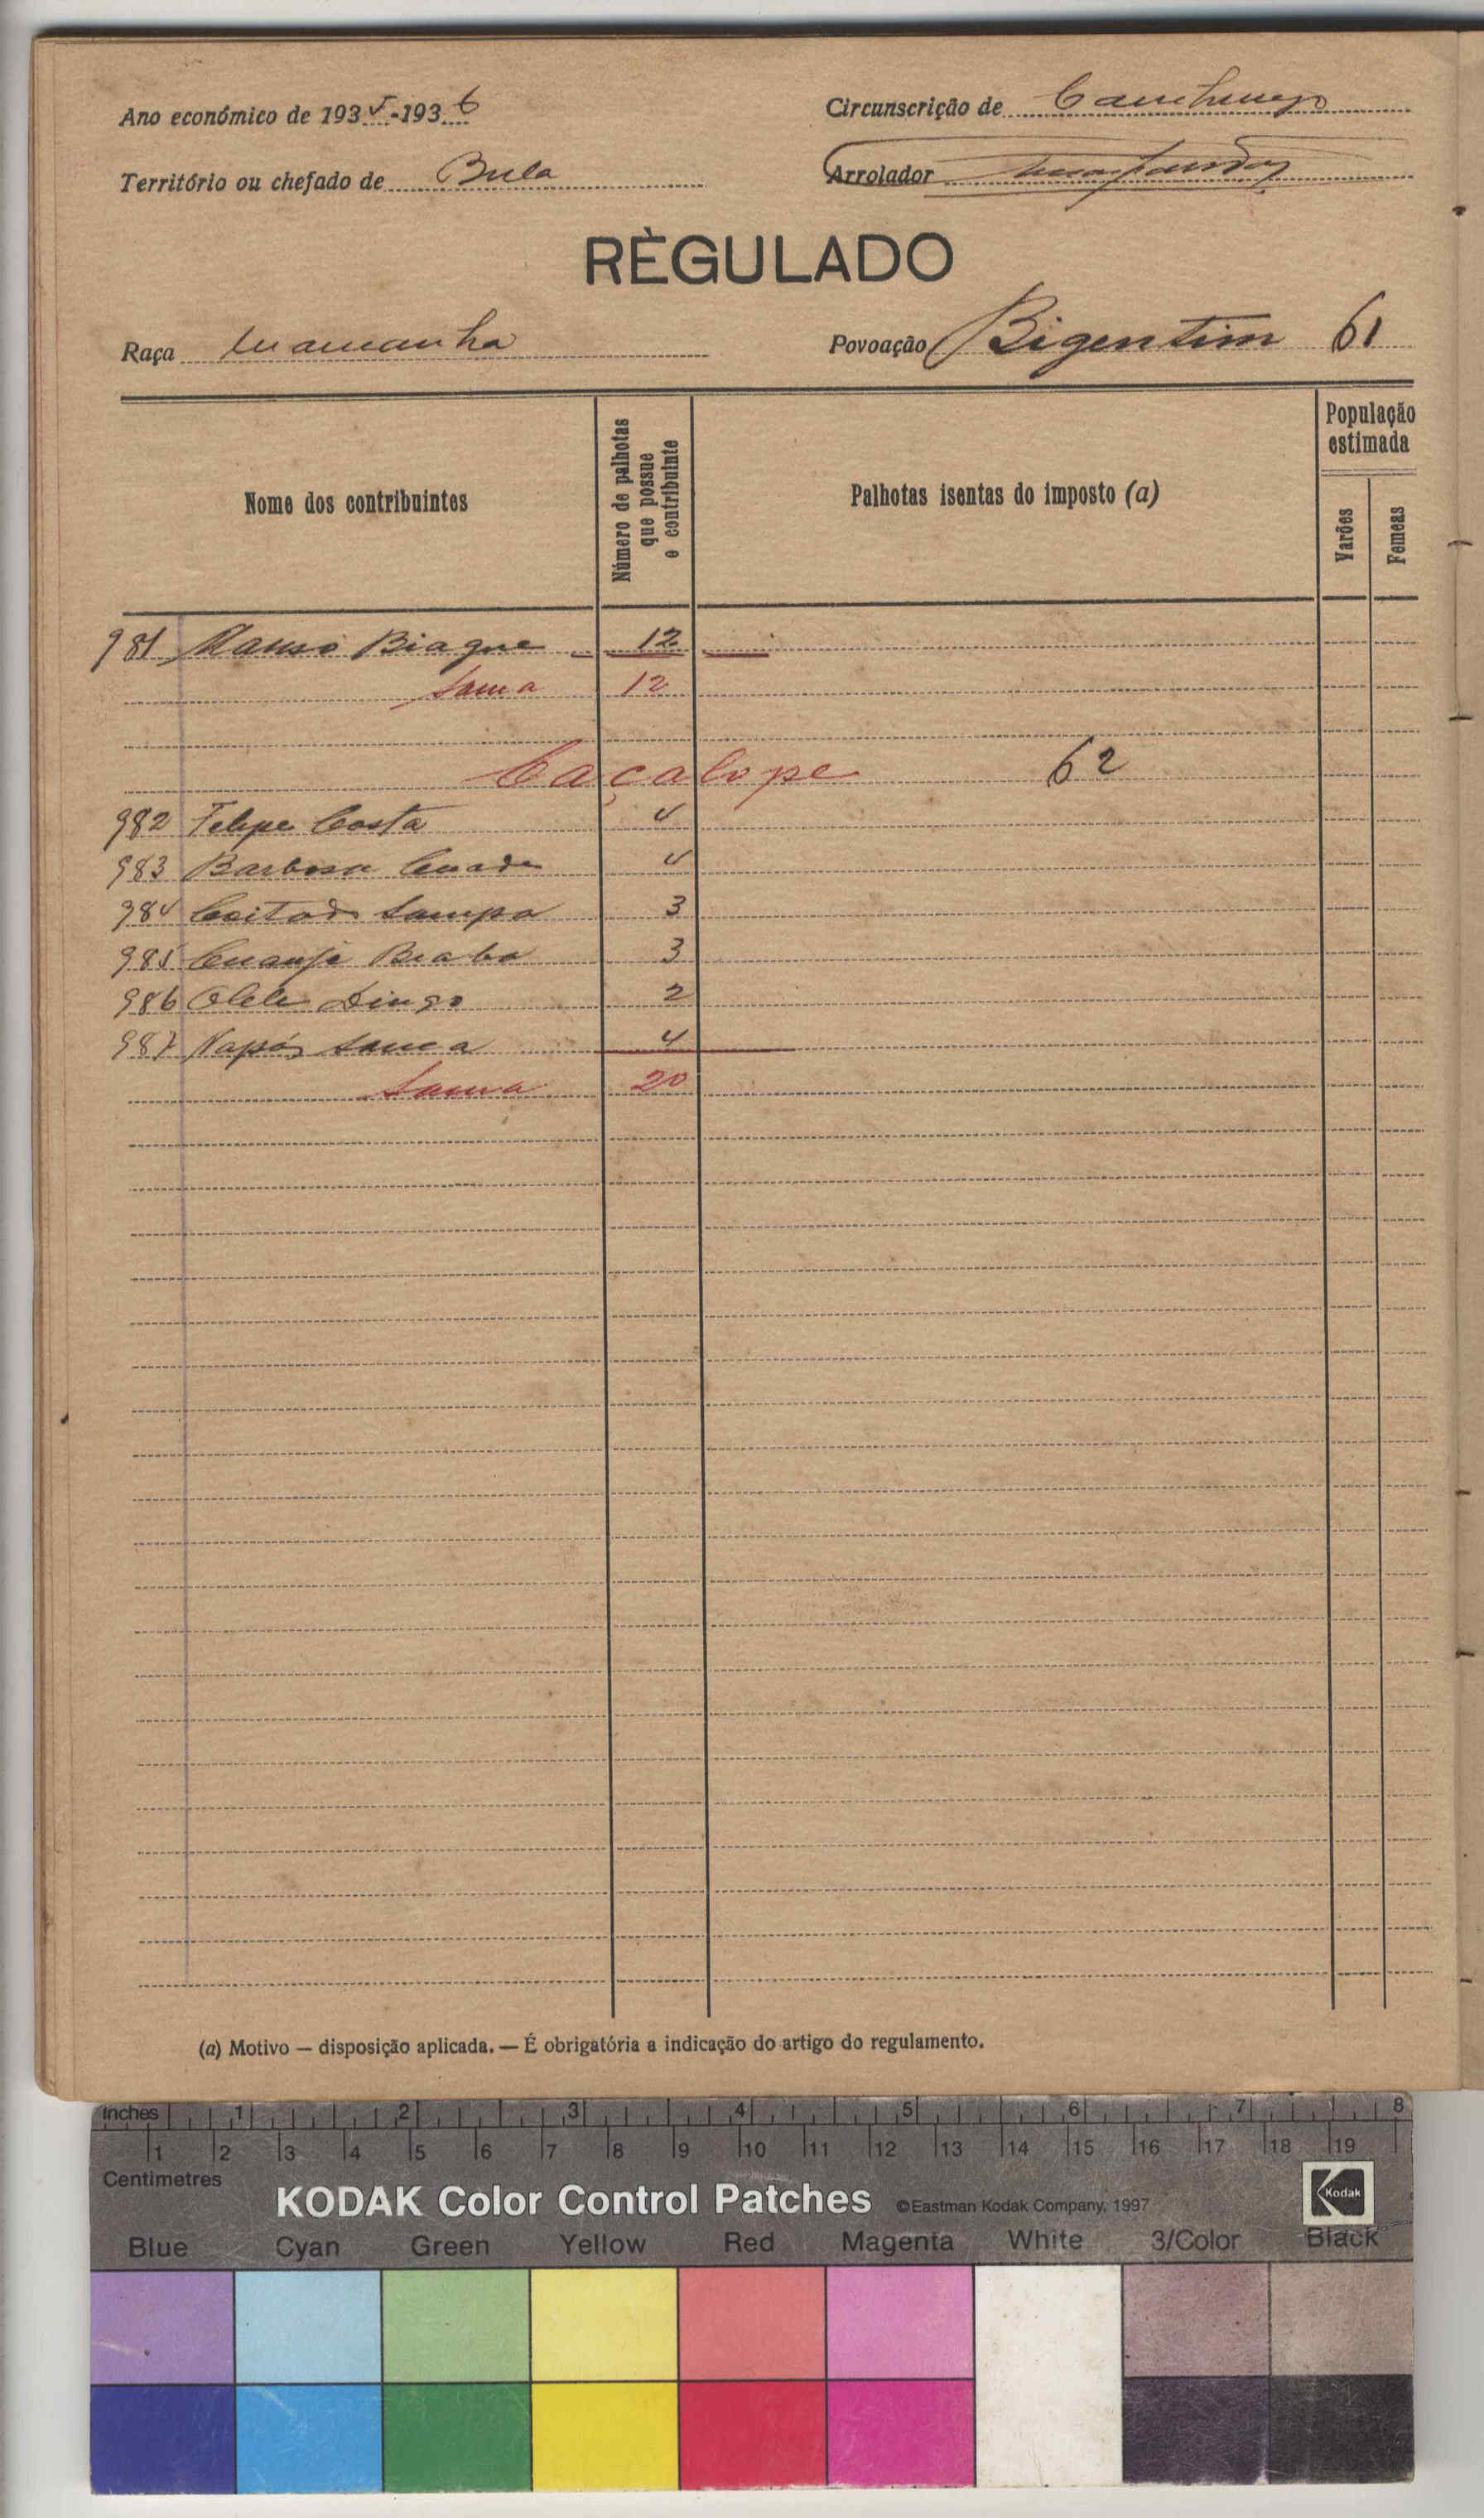 Ano económico de 1935-1936
Circunscrição de Canchungo
Território ou chefado de Bula
Arrolador
RÈGULADO
Raça Mamanha
Povoação Bigentim 61
Nome dos contribuintes
Número de palhotas que possue o contribuinte
Palhotas isentas do imposto (a)
População estimada
Varões
Femeas
981 Mauso Biague 12
Soma 12
Caçalope 62
982 Felipe Costa 4
983 Barbosa 4
984 Coitado Sampa 3
985 3
986 Olele Dingo 2
987 Napós 4
Soma 20
(a) Motivo — disposição aplicada. — É obrigatória a indicação do artigo do regulamento.
inches 1 2 3 4 5 6 7 8
1 2 3 4 5 6 7 8 9 10 11 12 13 14 15 16 17 18 19
Centimetres
KODAK Color Control Patches ©Eastman Kodak Company, 1997 Kodak
Blue Cyan Green Yellow Red Magenta White 3/Color Black